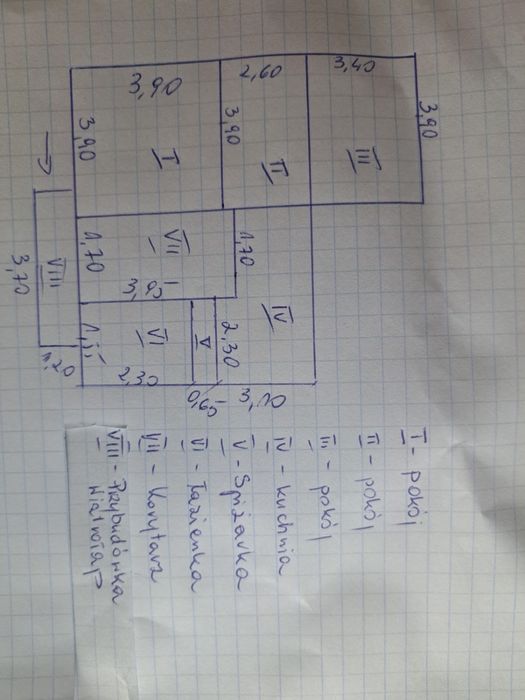 3,90
2,60
3,40
3,90
3,90
3,90
I
II
III
1,70
VII
1,70
3,95
IV
VIII
3,70
VI
V
2,30
2,30
0,60
3,10
I - pokój
II - pokój
III - pokój
IV - kuchnia
V - Spiżarka
VI - Łazienka
VII - Korytarz
VIII - Przybudówka
Wiatrołap